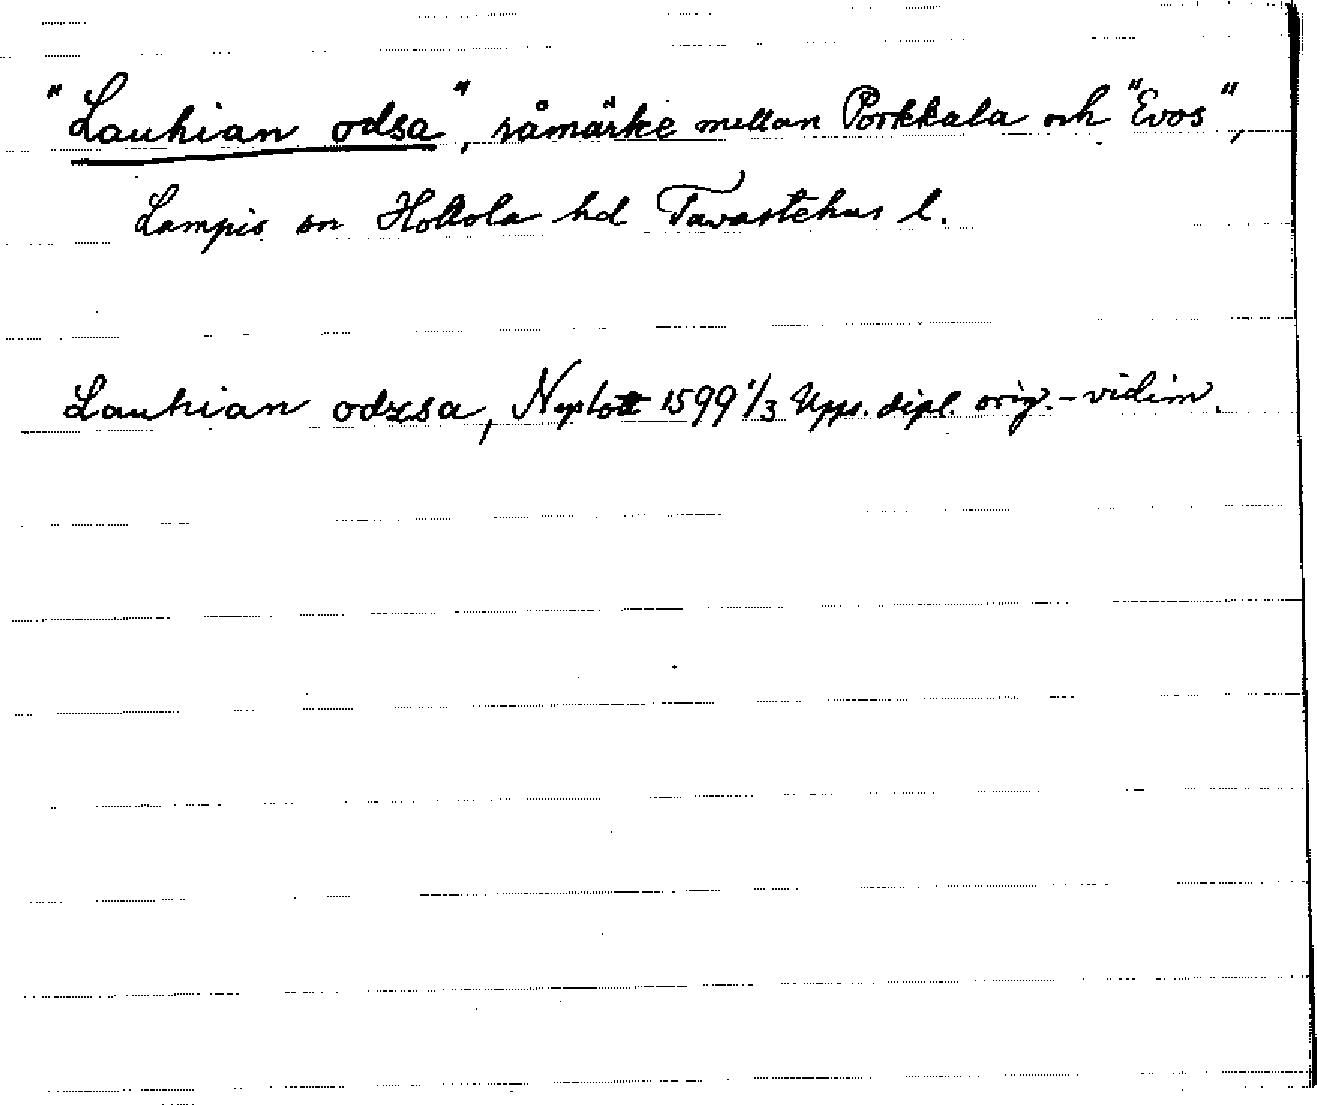 "Lauhian odsa", råmärke mellan Porkkala och "Evos",
Lampis sn Hollola hd Tavastehus l.
Lauhian odzsa, Nyslott 1599 1/3 Upps. dipl. orig.-vidim.